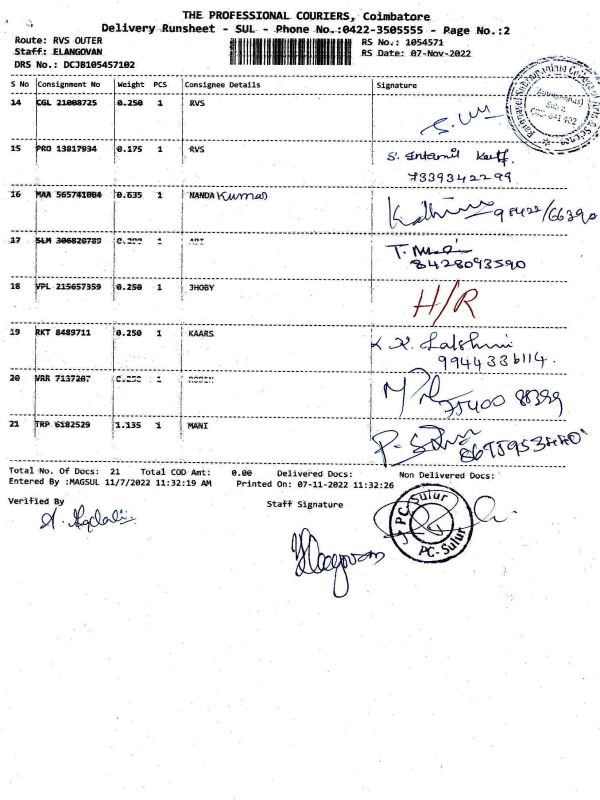 THE PROFESSIONAL COURIERS, Coimbatore
Delivery Runsheet - SUL - Phone No.:0422-3505555 - Page No.:2
Route: RVS OUTER
RS No.: 1054571
Staff: ELANGOVAN
RS Date: 07-Nov-2022
DRS No.: DCJB105457102
S No Consignment No Weight PCS Consignee Details Signature
14 CGL 21008725 0.250 1 RVS
15 PRO 13817934 0.175 1 RVS S.
7339342299
16 MAA 565741004 0.635 1 NANDA Kumar
17 SLM 306820789 T.
8428093590
18 VPL 215657359 0.250 1 JHOBY H/R
19 RKT 8489711 0.250 1 KAARS K. Lakshmi
9944336114.
20 VRR 7137207
21 TRP 6182529 1.135 1 MANI
Total No. Of Docs: 21 Total COD Amt: 0.00 Delivered Docs: Non Delivered Docs:
Entered By :MAGSUL 11/7/2022 11:32:19 AM Printed On: 07-11-2022 11:32:26
Verified By
Staff Signature
PC-Sulur
PC-Sulur